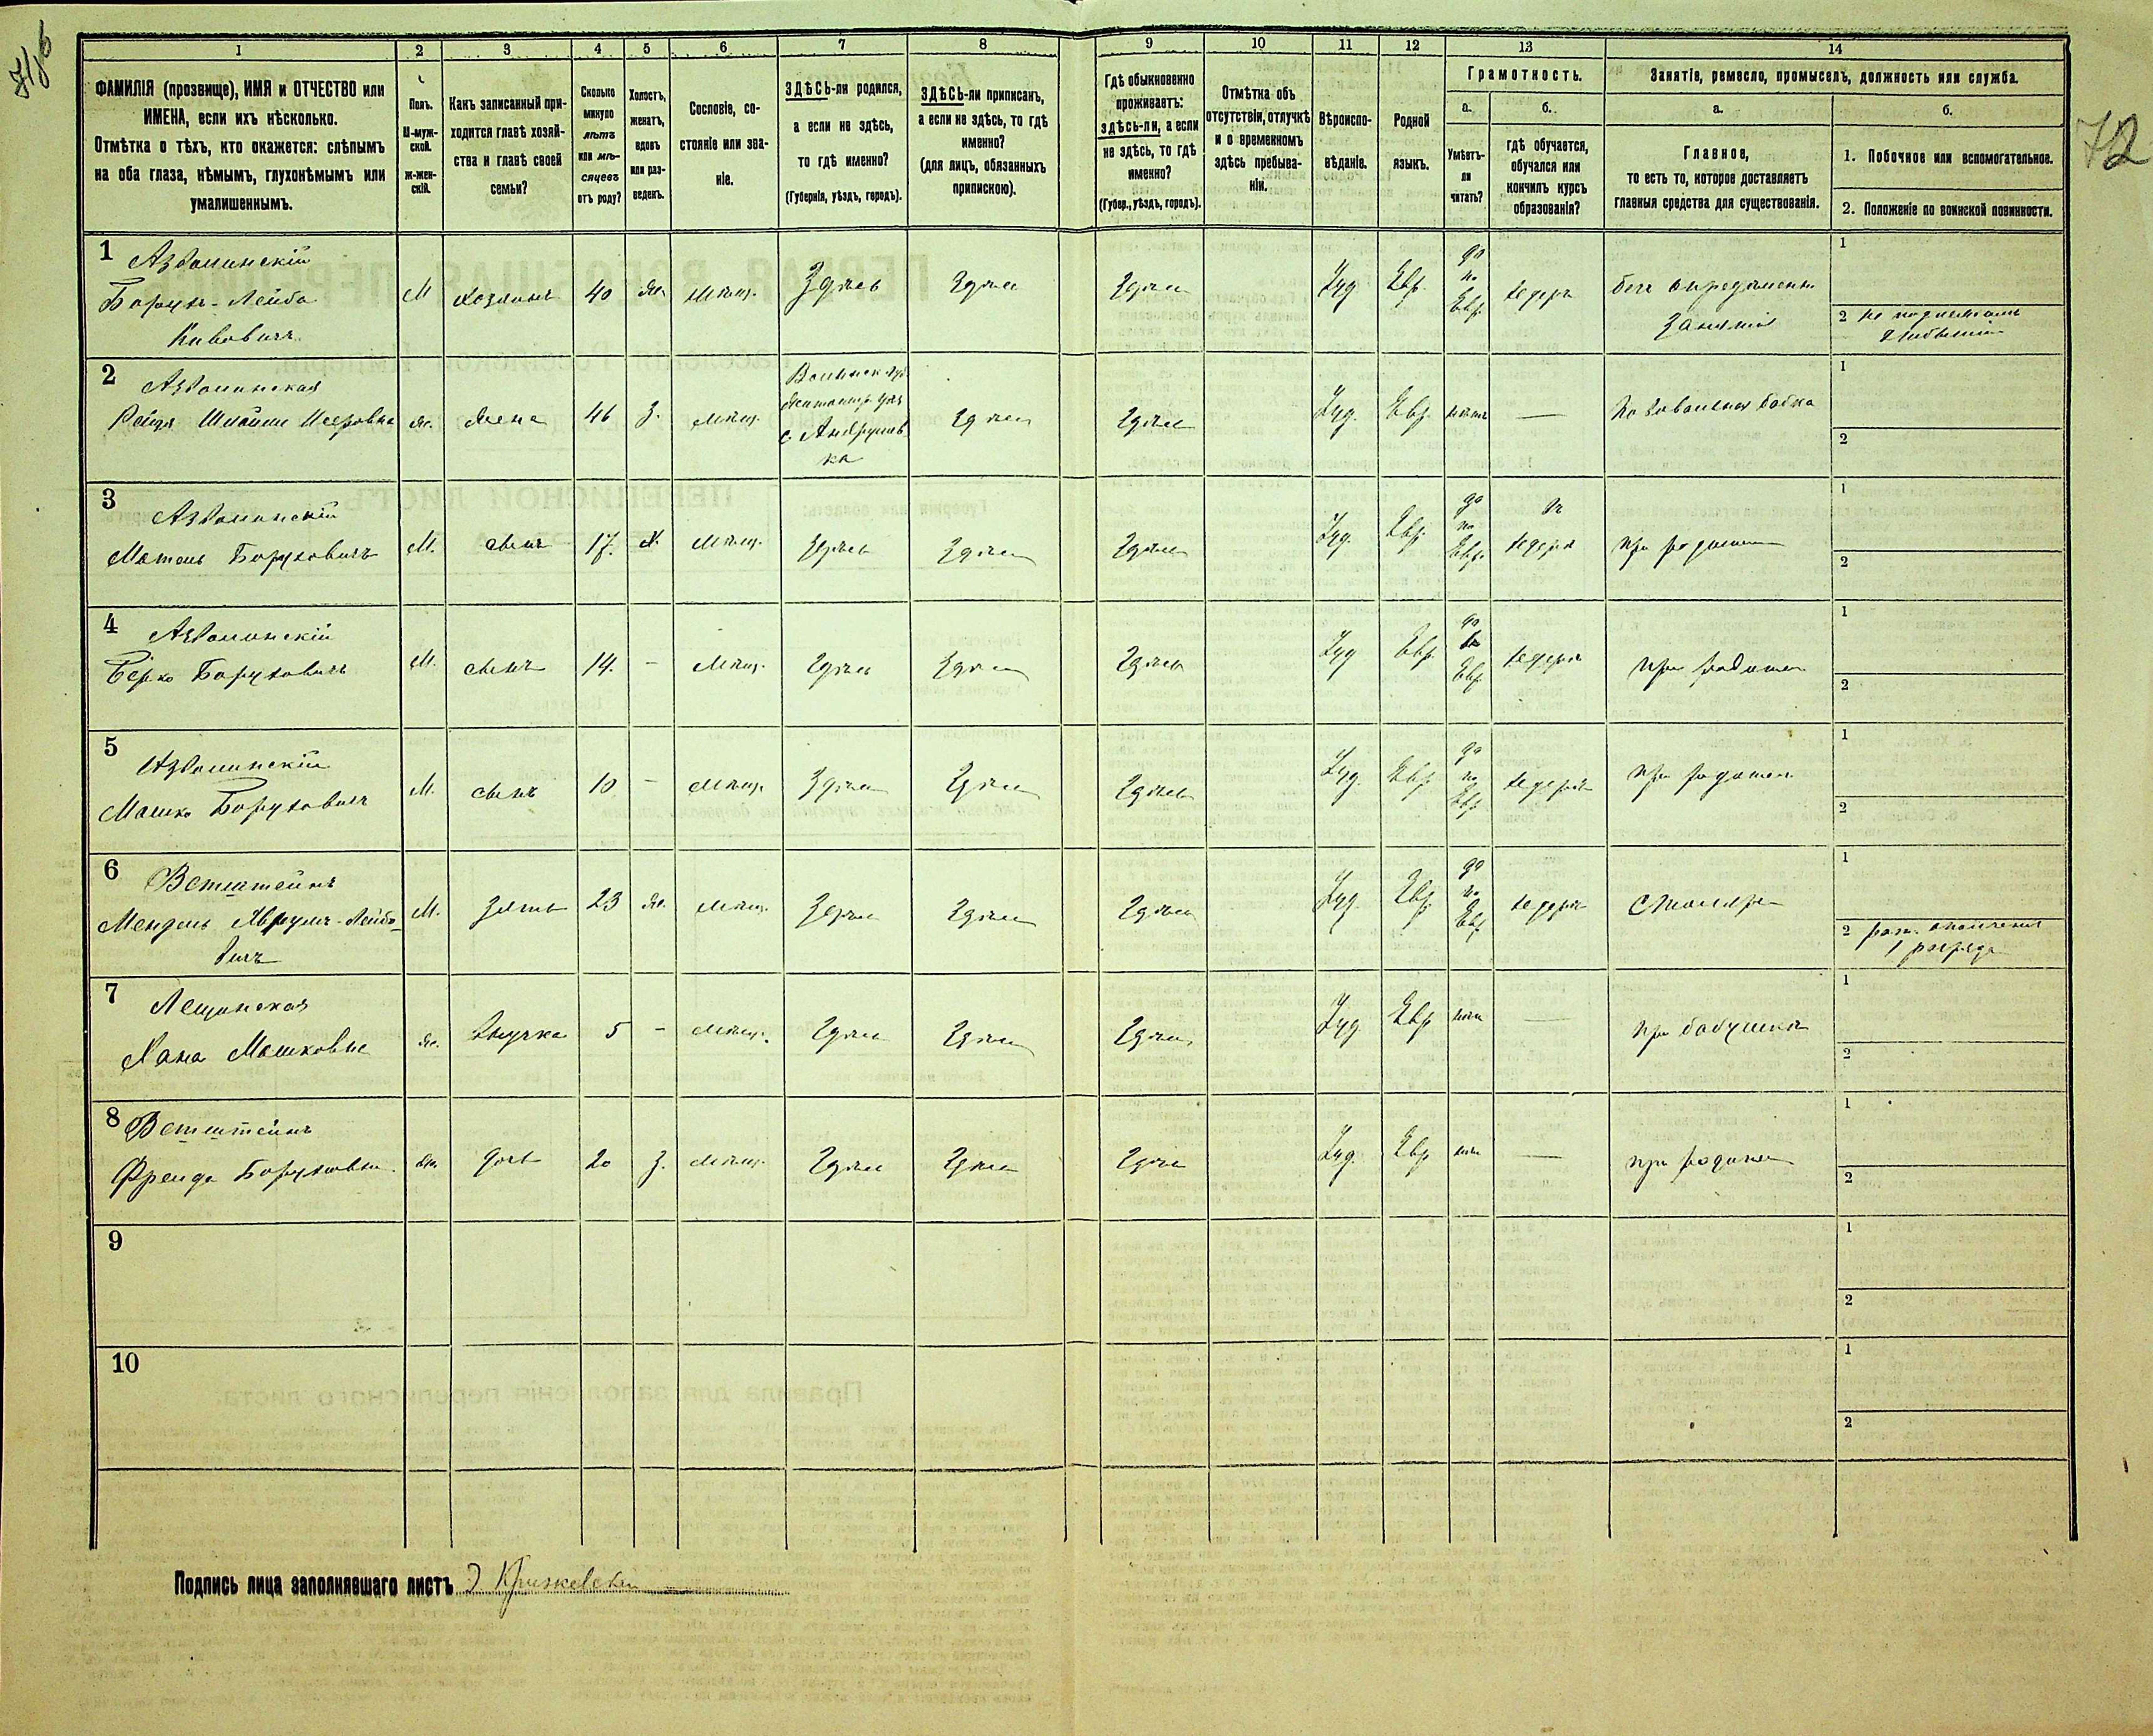 72
1 2 3 4 5 6 7 8 9 10 11 12 13 14
ФАМИЛІЯ (прозвище), ИМЯ и ОТЧЕСТВО или
ИМЕНА, если ихъ нѣсколько.
Отмѣтка о тѣхъ, кто окажется: слѣпымъ
на оба глаза, нѣмымъ, глухонѣмымъ или
умалишеннымъ.
Полъ.
М-муж-
ской.
ж-жен-
скій.
Какъ записанный при-
ходится главѣ хозяй-
ства и главѣ своей
семьи?
Сколько
минуло
лѣтъ
или мѣ-
сяцевъ
отъ роду?
Холостъ,
женатъ,
вдовъ
или раз-
веденъ.
Сословіе, со-
стояніе или зва-
ніе.
ЗДѢСЬ-ли родился,
а если не здѣсь,
то гдѣ именно?
(Губернія, уѣздъ, городъ).
ЗДѢСЬ-ли приписанъ,
а если не здѣсь, то гдѣ
именно?
(для лицъ, обязанныхъ
припискою).
Гдѣ обыкновенно
проживаетъ:
здѣсь-ли, а если
не здѣсь, то гдѣ
именно?
(Губер., уѣздъ, городъ).
Отмѣтка объ
отсутствіи, отлучкѣ
и о временномъ
здѣсь пребыва-
ніи.
Вѣроиспо-
вѣданіе.
Родной
языкъ.
Грамотность.
а.
Умѣетъ-
ли
читать?
б.
гдѣ обучается,
обучался или
кончилъ курсъ
образованія?
Занятіе, ремесло, промыселъ, должность или служба.
а.
Главное,
то есть то, которое доставляетъ
главныя средства для существованія.
б.
1. Побочное или вспомогательное.
2. Положеніе по воинской повинности.
1 Азволинскій
Борухъ-Лейба
М Хозяинъ 40 Же. Мѣщ. Здѣсь Здѣсь Здѣсь Іуд Евр. да по Евр. хедеръ безъ опредѣлен.
занятія
1
2
2 Азволинская
Же. Жена 46 З. Мѣщ. Волынск. губ.
Житомир. уѣз.
с. Андрушев-
ка
Здѣсь Здѣсь Іуд. Евр. нѣтъ — Повивальная бабка
1
2
3 Азволинскій
Мотель Боруховичъ М. сынъ 17. Х. Мѣщ. Здѣсь Здѣсь Здѣсь Іуд. Евр. да по Евр. хедеръ при родител
1
2
4 Азволинскій
Берко Боруховичъ М. сынъ 14. – Мѣщ. Здѣсь Здѣсь Здѣсь Іуд Евр. да по Евр хедеръ при родител
1
2
5 Азволинскій
Мошко Боруховичъ М. сынъ 10 – Мѣщ. Здѣсь Здѣсь Здѣсь Іуд. Евр. да по Евр хедеръ при родител
1
2
6 Ветштейнъ
Мендель Аврумъ-Лейбо-
вичъ
М. Зять 23 Же. Мѣщ. Здѣсь Здѣсь Здѣсь Іуд. Евр. да по Евр. хедеръ Столяръ
1
2 рат. ополченія
1 разряда
7 Лещинская
Хана Мошковна Же. Внучка 5 – Мѣщ. Здѣсь Здѣсь Здѣсь Іуд Евр нѣтъ — при бабушкѣ
1
2
8 Ветштейнъ
Фрейда Боруховна Же. дочь 20 З. Мѣщ. Здѣсь Здѣсь Здѣсь Іуд. Евр нѣтъ — при родител
1
2
9
1
2
10
1
2
Подпись лица заполнявшаго листъ